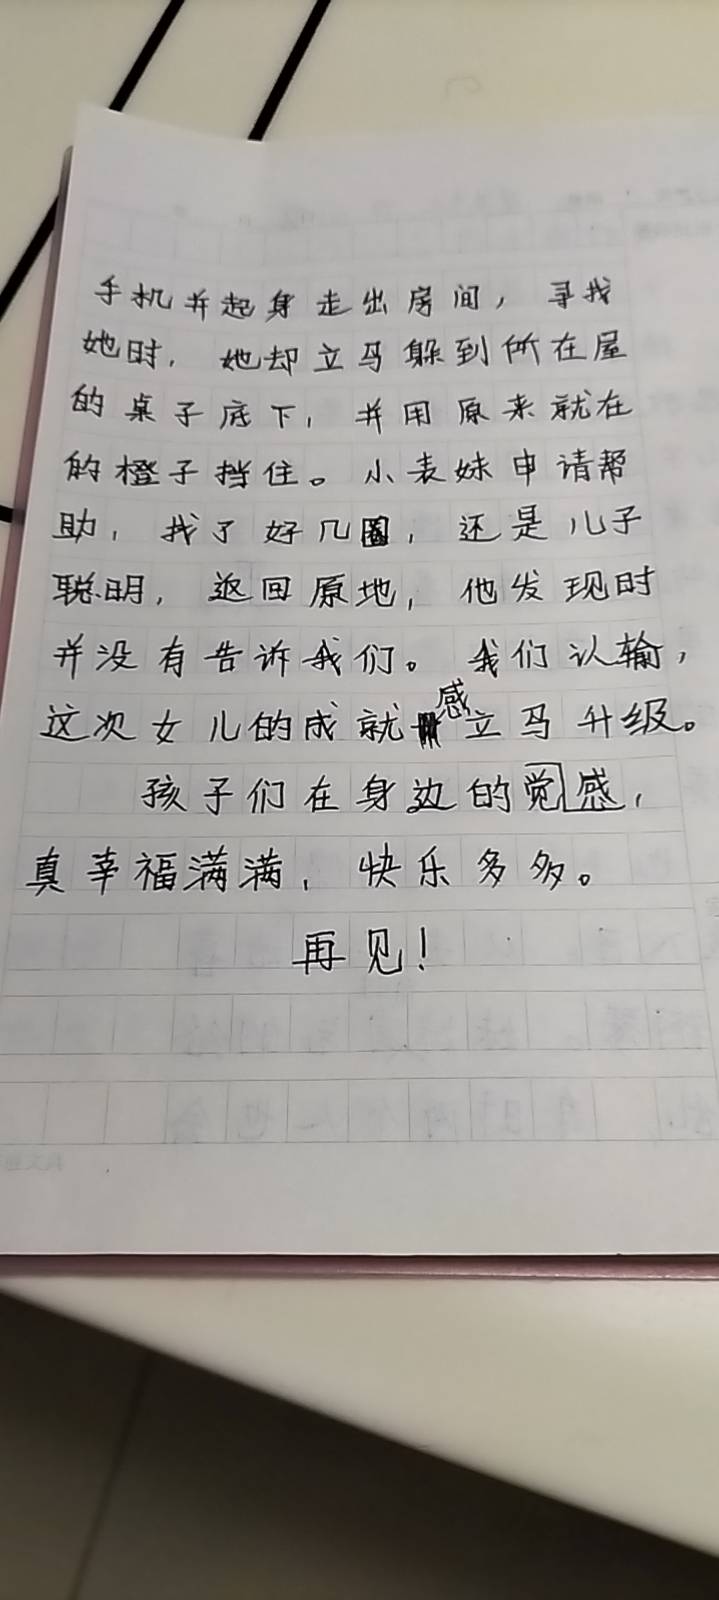 手机并起身走出房间，寻找
她时，她却立马躲到所在屋
的桌子底下，并用原来就在
的橙子挡住。小表妹申请帮
助，找了好几圈，还是儿子
聪明，返回原地，他发现时
并没有告诉我们。我们认输，
这次女儿的成就感立马升级。
孩子们在身边的觉感，
真幸福满满，快乐多多。
再见！